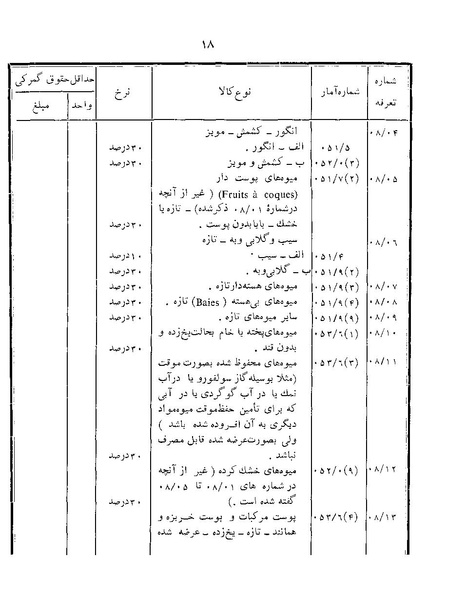 ۱۸
شماره تعرفه | شماره‌آمار | نوع‌کالا | نرخ | حداقل‌حقوق گمرکی
واحد | مبلغ
۰۸/۰۴ انگور ـ کشمش ـ مویز
۰۵۱/۵ الف ـ انگور . ۳۰درصد
۰۵۲/۰(۳) ب ـ کشمش و مویز ۳۰درصد
۰۸/۰۵ ۰۵۱/۷(۲) میوه‌های پوست دار
(Fruits à coques) ( غیر از آنچه
درشمارۀ ۰۸/۰۱ ذکرشده) ـ تازه یا
خشك ـ بایابدون پوست . ۳۰درصد
۰۸/۰۶ سیب و گلابی وبه ـ تازه
۰۵۱/۴ الف ـ سیب . ۱۰درصد
۰۵۱/۹(۲) ب ـ گلابی‌وبه . ۳۰درصد
۰۸/۰۷ ۰۵۱/۹(۳) میوه‌های هسته‌دارتازه . ۳۰درصد
۰۸/۰۸ ۰۵۱/۹(۴) میوه‌های بی‌هسته (Baies) تازه . ۳۰درصد
۰۸/۰۹ ۰۵۱/۹(۹) سایر میوه‌های تازه . ۳۰درصد
۰۸/۱۰ ۰۵۳/۶(۱) میوه‌های‌پخته یا خام بحالت‌یخ‌زده و
بدون قند . ۳۰درصد
۰۸/۱۱ ۰۵۳/۶(۳) میوه‌های محفوظ شده بصورت موقت
(مثلا بوسیله‌گاز سولفورو یا درآب
نمك یا در آب گوگردی یا در آبی
که برای تأمین حفظ‌موقت میوه‌مواد
دیگری به آن افروده شده باشد )
ولی بصورت‌عرضه شده قابل مصرف
نباشد . ۳۰درصد
۰۸/۱۲ ۰۵۲/۰(۹) میوه‌های خشك کرده ( غیر از آنچه
در شماره های ۰۸/۰۱ تا ۰۸/۰۵
گفته شده است .) ۳۰درصد
۰۸/۱۳ ۰۵۳/۶(۴) پوست مرکبات و پوست خربزه و
همانند ـ تازه ـ یخ‌زده ـ عرضه شده